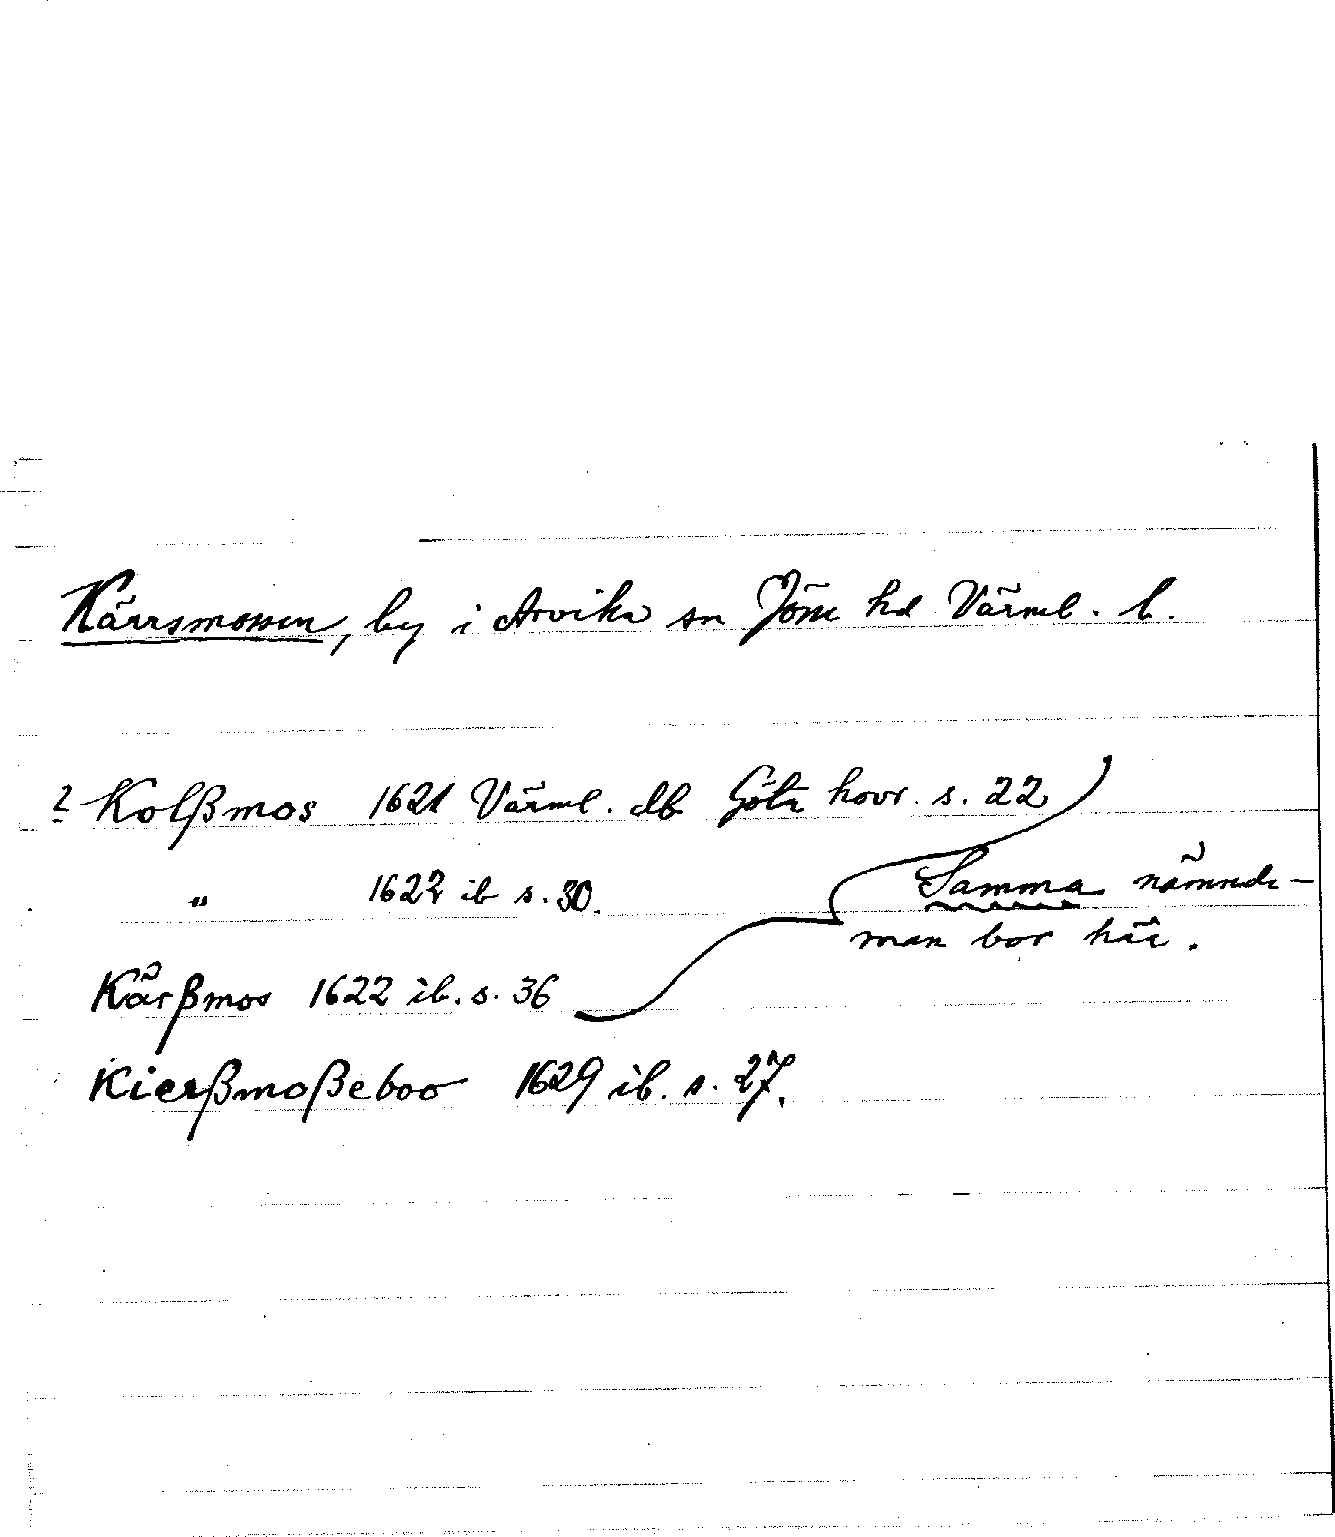 Kärrsmossen, by i Arvika sn Jöss hd Värml. l.
? Kolßmos 1621 Värml. db Göta hovr. s. 22
" 1622 ib s. 30.
Samma nämnde-
man bor här.
Kärßmos 1622 ib. s. 36
Kierßmoßeboo 1629 ib. s. 27.